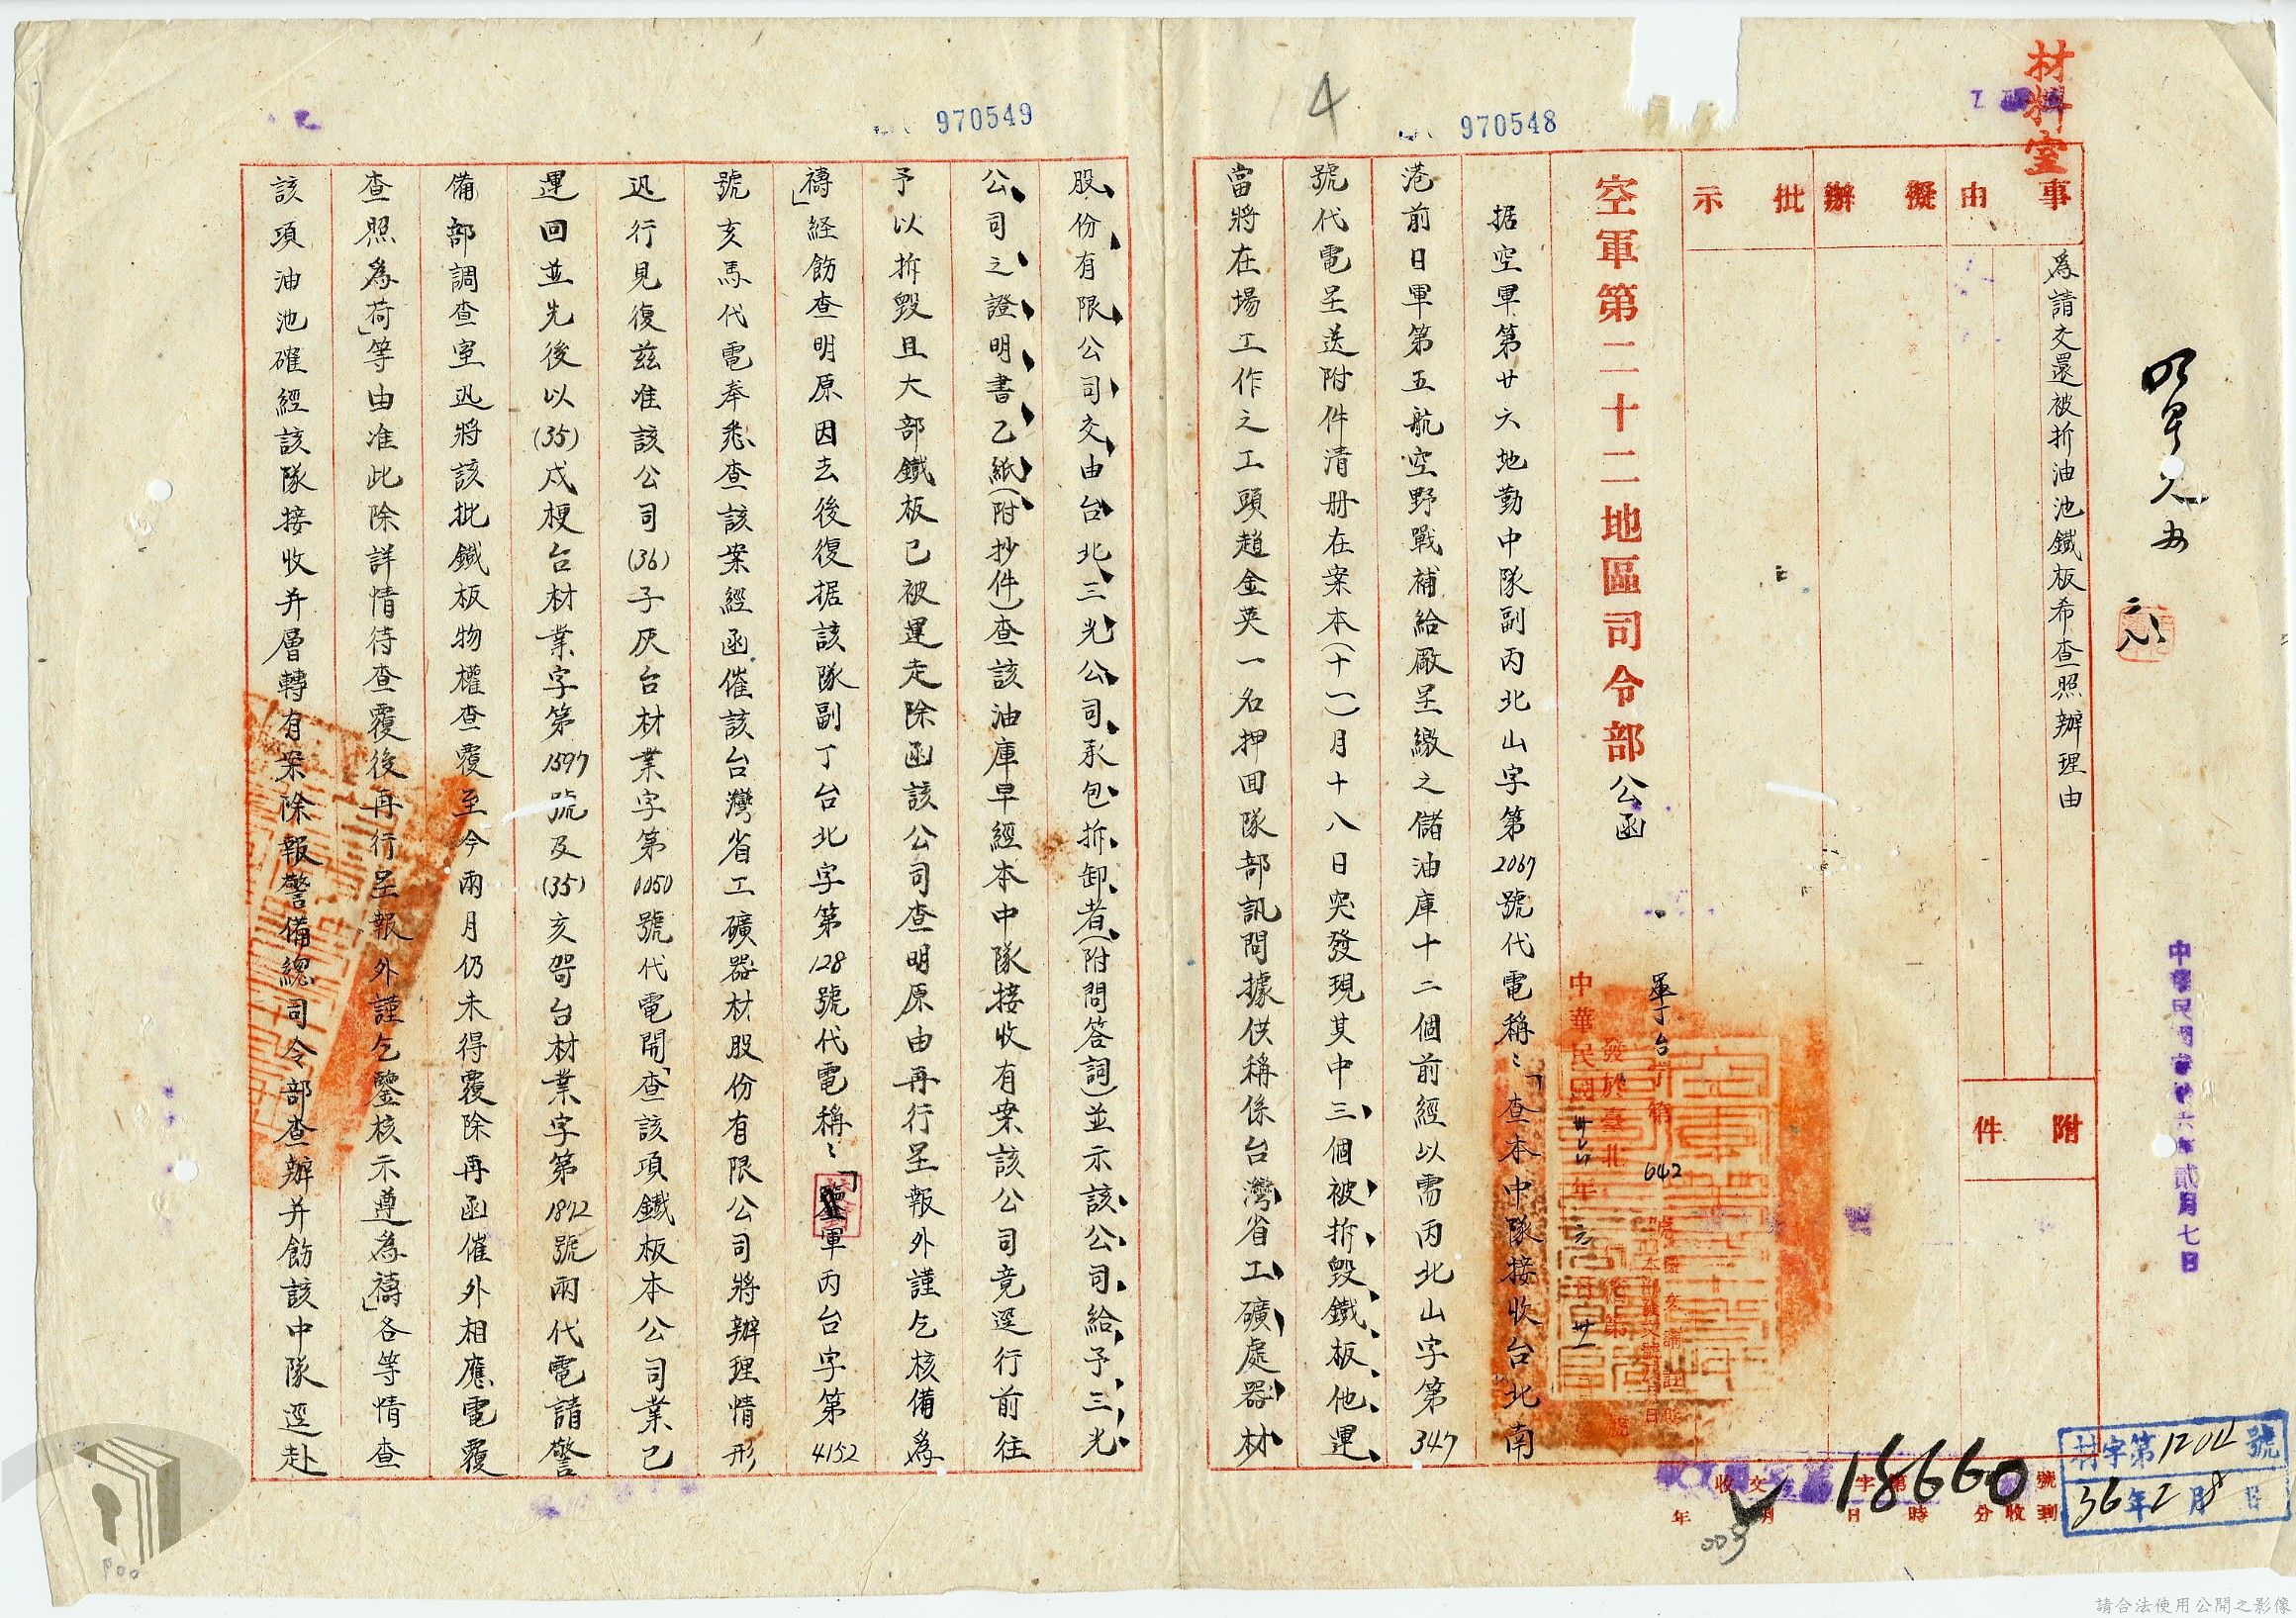 材料室
事由
為請交還被折油池鐵板希查照辦理由
附件
擬辦
批示
空軍第二十二地區司令部公函
中華民國卅六年元月卅一日
發於臺北
642
据空軍第廿六地勤中隊副丙北山字第2067號代電稱:「查本中隊接收台北南
港前日軍第五航空野戰補給廠呈繳之儲油庫十二個前經以需丙北山字第347
號代電呈送附件清册在案本(十一)月十八日突發現其中三個被拆毀鐵板他運
當將在場工作之工頭趙金英一名押回隊部訊問據供稱係台灣省工礦處器材
股份有限公司交由台北三光公司承包拆卸者(附問答詞)並示該公司給予三光
公司之證明書乙紙(附抄件)查該油庫早經本中隊接收有案該公司竟逕行前往
予以拆毀且大部鐵板已被運走除函該公司查明原由再行呈報外謹乞核備為
禱」經飭查明原因去後復据該隊副丁台北字第128號代電稱:「 軍丙台字第4152
號亥馬代電奉悉查該案經函催該台灣省工礦器材股份有限公司將辦理情形
迅行見復茲准該公司(36)子灰台材業字第1050號代電開「查該項鐵板本公司業已
運回並先後以(35)戍梗台材業字第1597號及(35)亥哿台材業字第1872號兩代電請警
備部調查室迅將該批鐵板物權查覆至今兩月仍未得覆除再函催外相應電覆
查照為荷」等由准此除詳情待查覆後再行呈報外謹乞鑒核示遵為禱」各等情查
該項油池確經該隊接收并層轉有案除報警備總司令部查辦并飭該中隊逕赴
970548
970549
4
中華民國叁拾六年貳月七日
收文 字第18660號
年 月 日 時 分收到
材字第1204號
36年2月8日
003
請合法使用公開之影像